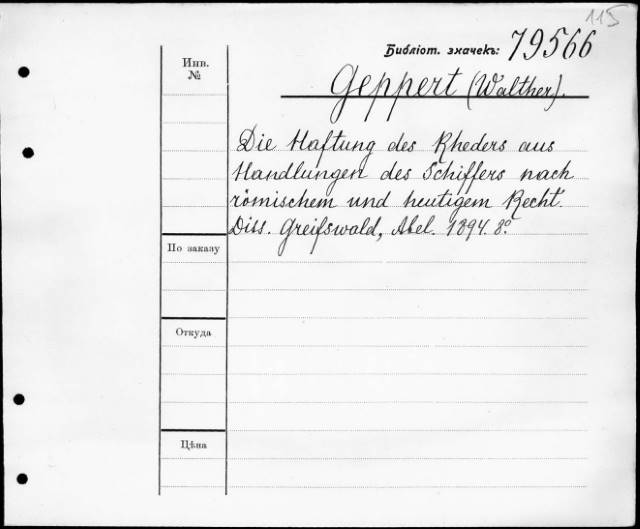 115
Библіот. значекъ: 79566
Инв.
№
Geppert (Walther).
Die Haftung des Rheders aus
Handlungen des Schiffers nach
römischem und heutigem Recht.
Diss. Greifswald, Abel. 1894. 8°.
По заказу
Откуда
Цѣна